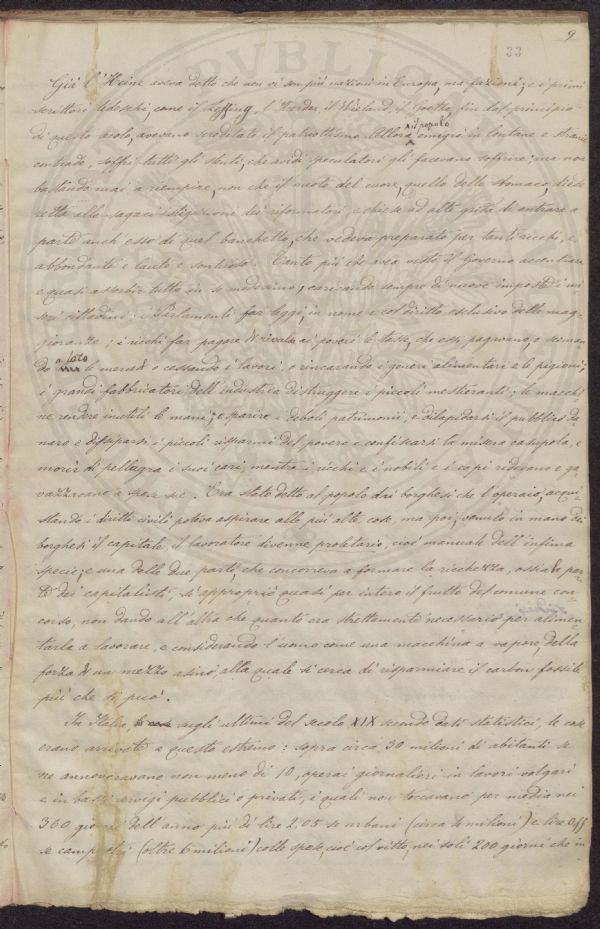 9
33
Già l'Heine aveva detto che non vi son più nazioni in Europa, ma fazioni; e i primi
scrittori tedeschi, come il Lessing, l'Herder, il Wieland, il Goethe, fin dal principio
di questo secolo, avevano screditato il patriottismo. Allora il popolo emigrò in lontane e stranie
contrade, soffrì tutti gli stenti, che avidi speculatori gli facevano soffrire; ma non
bastando mai a riempire, non che il vuoto del cuore, quello dello stomaco, diede
retta alle sagaci istigazioni dei riformatori e chiese ad alte grida di entrare a
parte anch'esso di quel banchetto, che vedeva preparato per tanti ricchi, e
abbondante e lauto e sontuoso. Tanto più che avea visto il Governo accentrare
e quasi assorbir tutto in se medesimo, caricando sempre di nuove imposte i mi
seri cittadini: i Parlamenti far leggi, in nome e col diritto esclusivo delle mag-
gioranze; i ricchi far pagare di rivalsa ai poveri le tasse, che essi pagavano, o sceman
do a loro le mercedi o cessando i lavori, o rincarando i generi alimentari e le pigioni;
i grandi fabbricatori dell'industria distruggere i piccoli mestieranti; le macchi
ne rendere inutili le mani; e sparire i deboli patrimonii, e dilapidarsi il pubblico da
naro e disparsi i piccoli risparmi del povero e confiscarsi la misera casupola, e
morir di pellagra i suoi cari, mentre i ricchi e i nobili e i capi ridevano e ga
vazzavano a spese sue. Era stato detto al popolo dai borghesi che l'operaio, acqui
stando i diritti civili poteva aspirare alle più alte cose, ma poi, venuto in mano dei
borghesi il capitale, il lavoratore divenne proletario, cioè manuale dell'infima
specie; e una delle due parti, che concorreva a formare la ricchezza, ossia la par
te dei capitalisti, si appropriò quasi per intero il frutto del comune con
corso, non dando all'altra che quanto era strettamente necessario per alimen
tarla a lavorare, e considerando l'uomo come una macchina a vapore, della
forza di un mezzo asino, alla quale si cerca di risparmiare il carbon fossile
più che si può.
In Italia, sugli ultimi del secolo XIX secondo dati statistici, le cose
erano arrivate a questo estremo: sopra circa 30 milioni di abitanti se
ne annoveravano non meno di 10, operai giornalieri in lavori volgari
e in bassi servigi pubblici o privati, i quali non toccavano per media nei
360 giorni dell'anno più di lire 2,05 se urbani (circa 4 milioni) e lire 0,77
se campestri (oltre 6 milioni) colle spese, cioè col vitto, nei soli 200 giorni che in